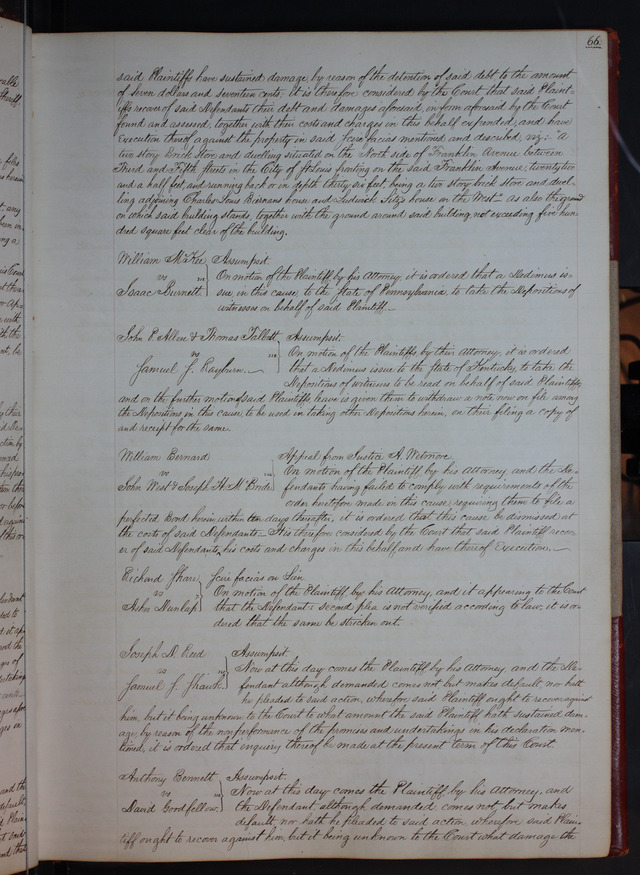 66.
said Plaintiffs have sustained damage by reason of the detention of said debt to the amount
of seven dollars and seventeen cents. It is therefore considered by the Court that said Plaint-
iffs recover of said Defendants their debt and damages aforesaid, in form aforesaid by the Court
found and assessed, together with their costs and charges in this behalf expended, and have
execution thereof against the property in said Scire facias mentioned and described, viz: "a
two story Brick Store and dwelling situated on the North side of Franklin Avenue between
Third and Fifth streets in the City of St Louis fronting on the said Franklin Avenue, twenty two
and a half feet and running back or in depth thirty six feet, being a two story brick store and dwel-
ling adjoining Charles Louis Bernans house and Ludwick house on the West- as also the ground
on which said building stands, together with the ground around said building, not exceeding five hun-
dred square feet clear of the building.
William McKee Assumpsit
vs On motion of the Plaintiff by his Attorney, it is ordered that a Dedimus is-
Isaac Burnett sue, in this cause, to the State of Pennsylvania, to take the Depositions of
witnesses on behalf of said Plaintiff.
John P. Allen & Thomas Talbott Assumpsit.
vs On motion of the Plaintiffs, by their Attorney, it is ordered
Samuel J. Rayburn. that a Dedimus issue to the State of Kentucky, to take the
Depositions of witnesses to be read on behalf of said Plaintiffs,
and on the further motion of said Plaintiffs, leave is given them to withdraw a note now on file among
the Depositions in this cause, to be used in taking other Depositions herein, on their filing a copy of
and receipt for the same.
William Bernard Appeal from Justice A. Wetmore
vs On motion of the Plaintiff by his Attorney, and the De-
John West & Joseph H. McBride fendants having failed to comply with requirements of the
order heretofore made in this cause, requiring them to file a
perfected Bond herein within ten days thereafter, it is ordered that this cause be dismissed at
the costs of said Defendants- It is therefore considered by the Court that said Plaintiff recov-
er of said Defendants, his costs and charges in this behalf and have thereof Execution.
Richard Share Scire facias on Lien
vs On motion of the Plaintiff by his Attorney, and it appearing to the Court
Asher Dunlap that the Defendants second plea is not verified according to law, it is or-
dered that the same be stricken out.
Joseph N. Reed Assumpsit
vs Now at this day comes the Plaintiff by his Attorney, and the De-
Samuel J. fendant although demanded comes not but makes default, nor hath
he pleaded to said action, wherefore said Plaintiff ought to recover against
him, but it being unknown to the Court to what amount the said Plaintiff hath sustained dam-
age, by reason of the nonperformance of the promises and undertakings in his declaration men-
tioned, it is ordered that enquiry thereof be made at the present term of this Court
Anthony Bennett Assumpsit.
vs Now at this day comes the Plaintiff, by his Attorney, and
David Goodfellow. the Defendant although demanded comes not but makes
default, nor hath he pleaded to said action wherefore said Plain-
tiff ought to recover against him, but it being unknown to the Court what damage the